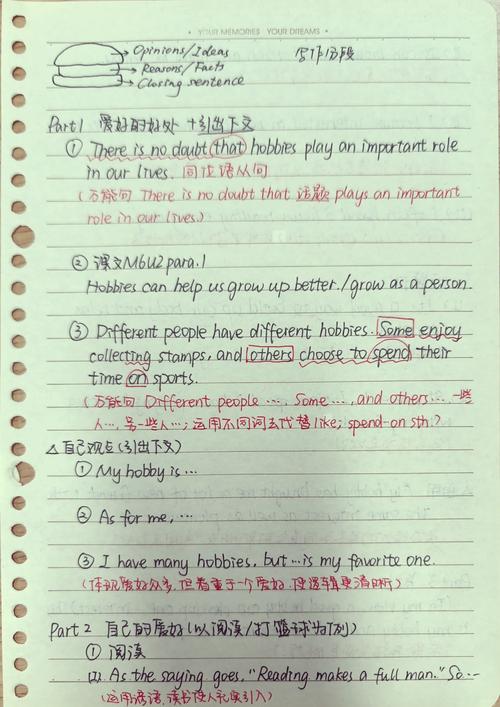 • YOUR MEMORIES YOUR DREAMS •
Opinions/Ideas
写作分段
Reasons/Facts
Closing sentence
Part 1 爱好的好处 + 引出下文
① There is no doubt that hobbies play an important role
in our lives. 同位语从句
(万能句 There is no doubt that 话题 plays an important
role in our lives.)
② 课文M6U2 para.1
Hobbies can help us grow up better./grow as a person.
③ Different people have different hobbies. Some enjoy
collecting stamps, and others choose to spend their
time on sports.
(万能句 Different people …, Some …, and others … 一些
人…, 另一些人…; 运用不同词去代替like; spend-on sth.)
△ 自己观点(引出下文)
① My hobby is …
② As for me, …
③ I have many hobbies, but … is my favorite one.
(体现爱好众多, 但着重于一个爱好, 使逻辑更清晰)
Part 2 自己的爱好(以阅读/打篮球为例)
① 阅读
(1). As the saying goes, "Reading makes a full man." So …
(运用谚语, 读书使人充实引入)